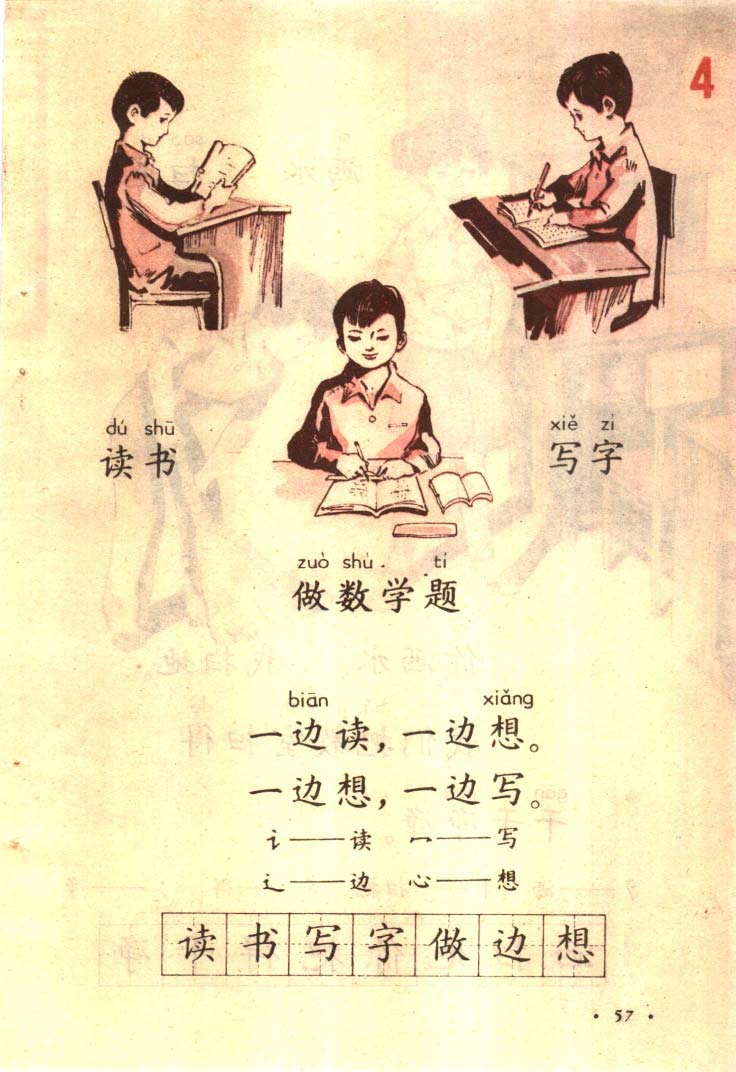 4
dú shū
读书
xiě zì
写字
zuò shù tí
做数学题
biān xiǎng
一边读，一边想。
一边想，一边写。
讠——读 冖——写
辶——边 心——想
读书写字做边想
·57·